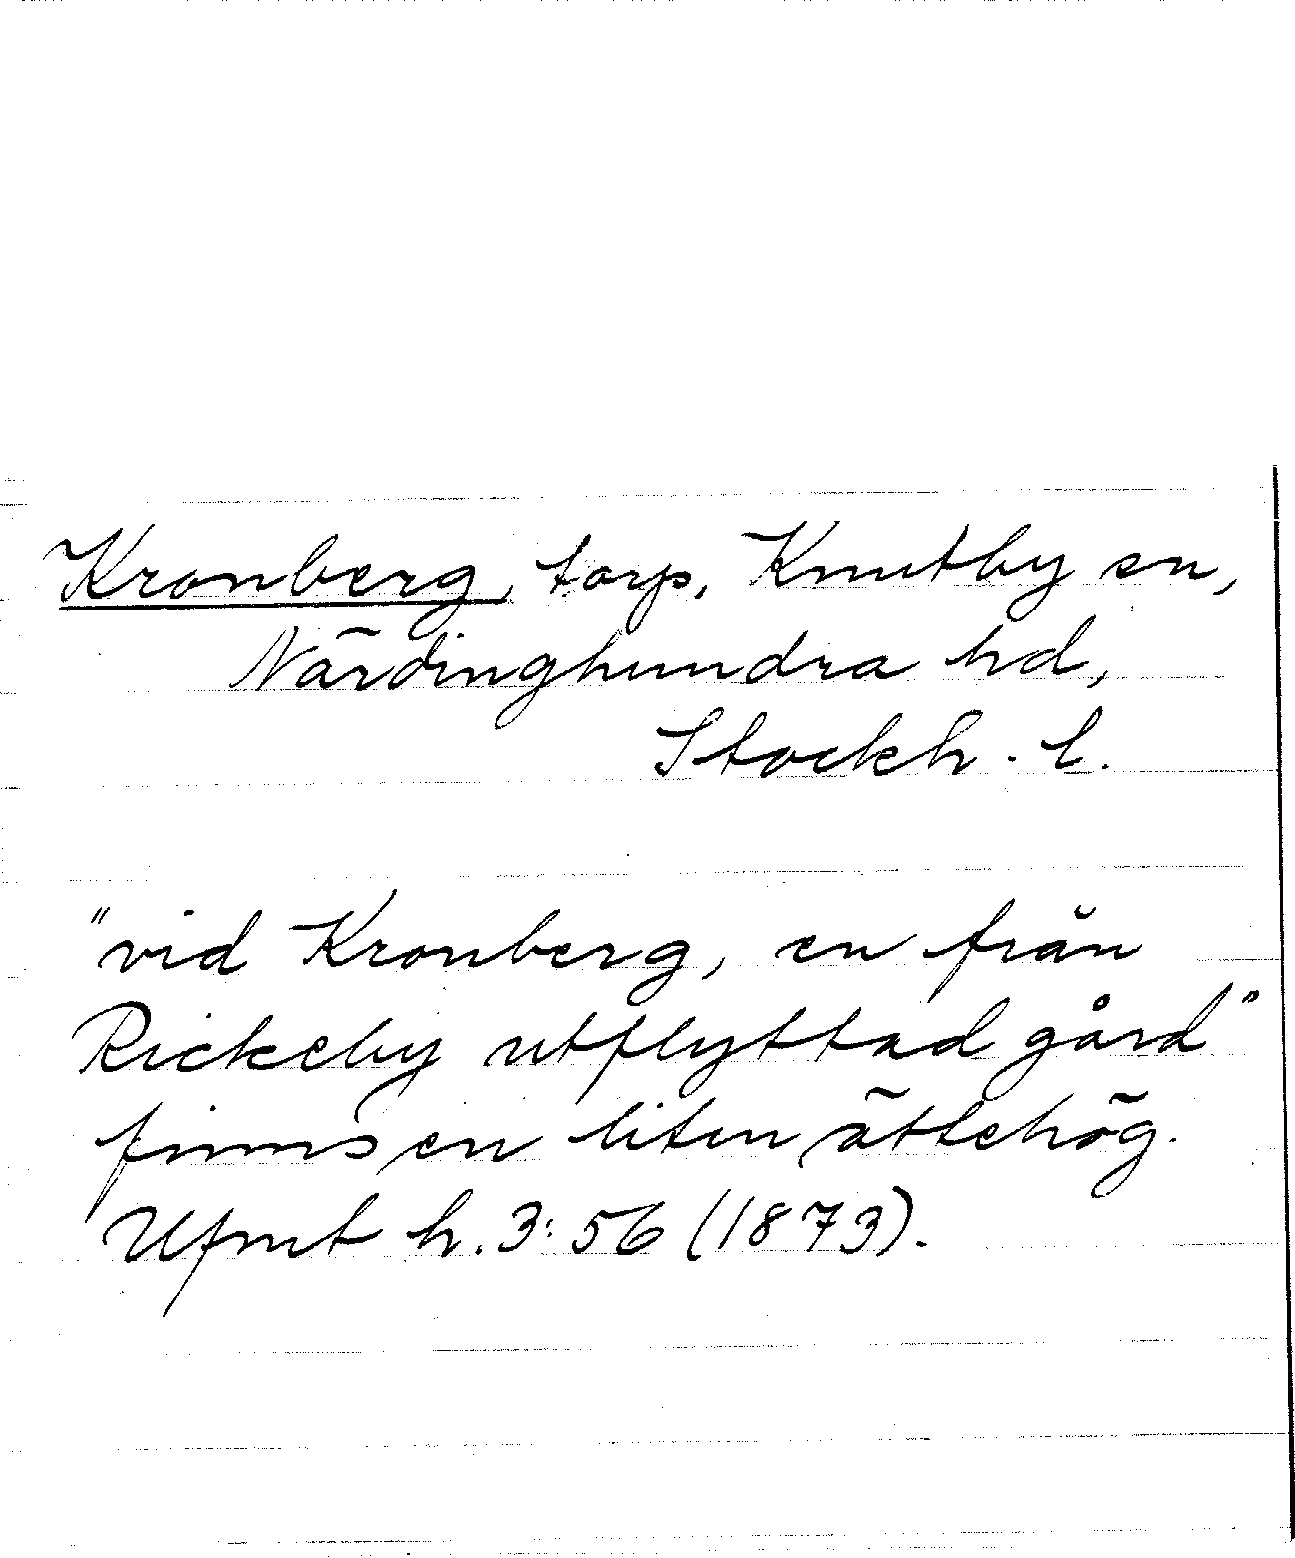 Kronberg, torp, Knutby sn,
Närdinghundra hd,
Stockh. l.
"vid Kronberg, en från
Rickeby utflyttad gård"
finns en liten ättehög.
Ufmt h. 3:56 (1873).